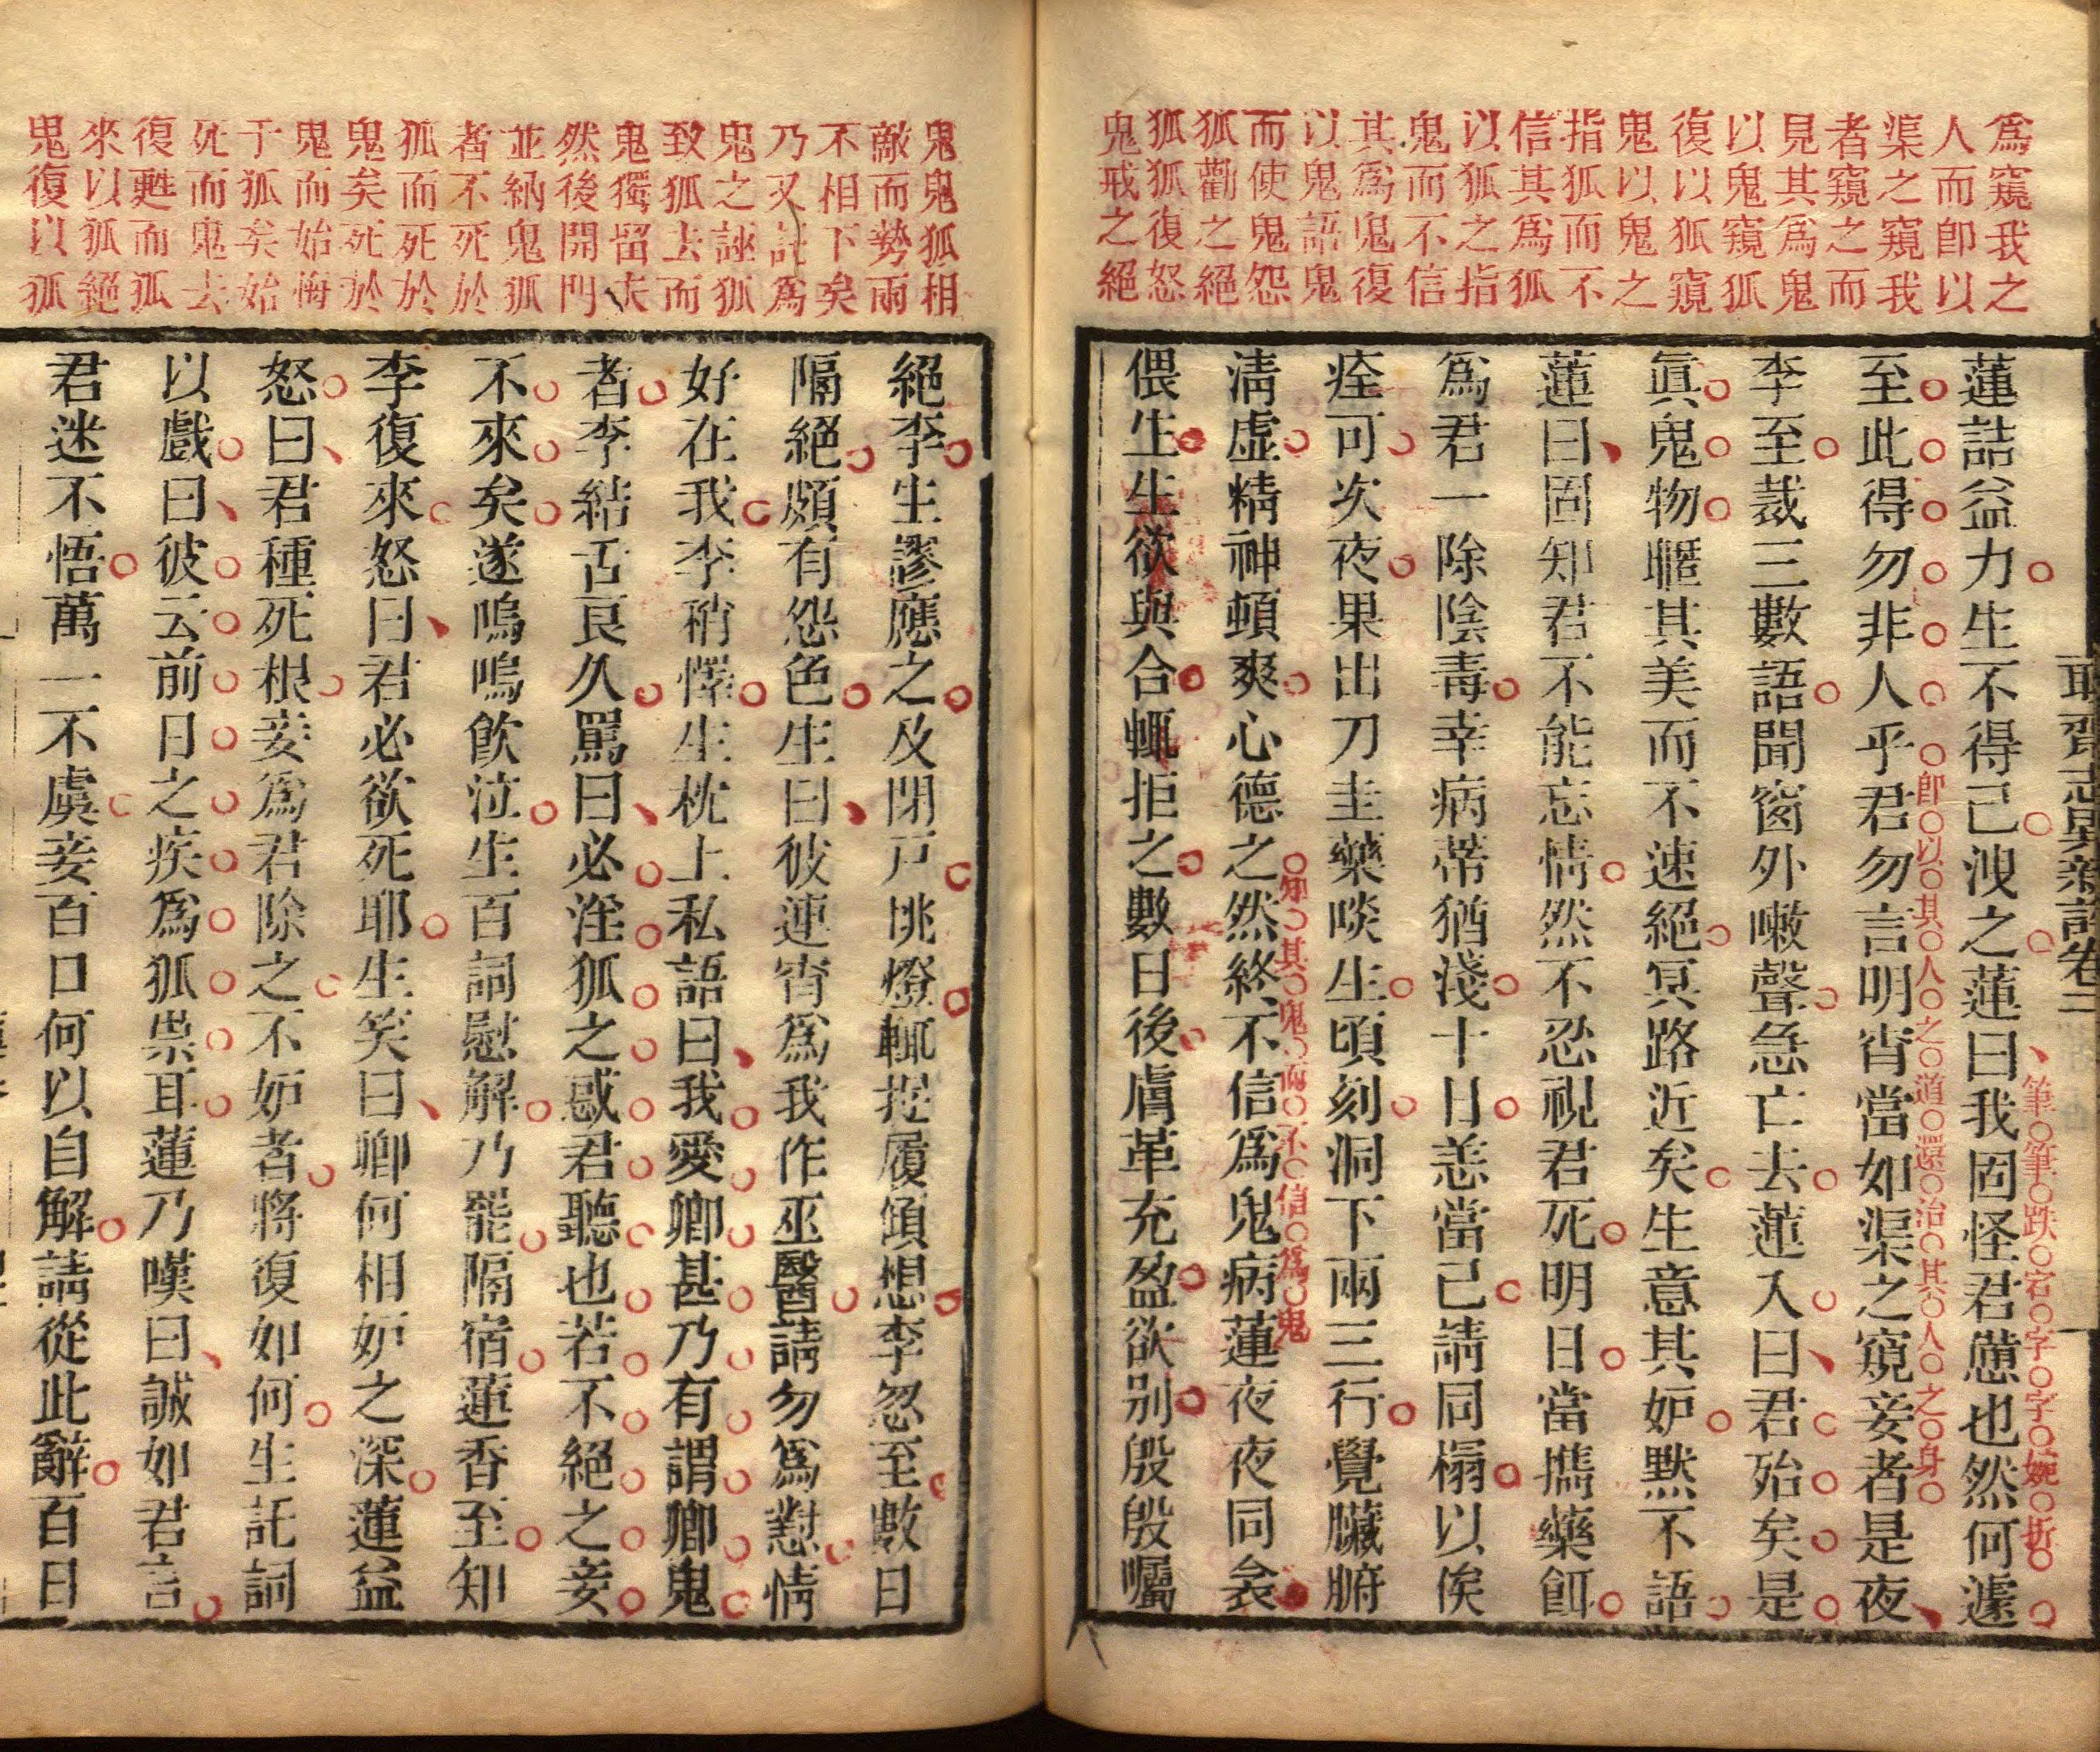 為窺我之
人而卽以
渠之窺我
者窺之而
見其為鬼
以鬼窺狐
復以狐窺
鬼以鬼之
指狐而不
信其為狐
以狐之指
鬼而不信
其為鬼復
以鬼語鬼
而使鬼怨
狐勸之絕
狐狐復怒
鬼戒之絕
聊齋志異新評卷二
蓮詰益力生不得已洩之蓮曰我固怪君憊也然何遽
筆筆跌宕字字婉折
至此得勿非人乎君勿言明宵當如渠之窺妾者是夜
卽以其人之道還治其人之身
李至裁三數語聞窗外嗽聲急亡去蓮入曰君殆矣是
眞鬼物暱其美而不速絕冥路近矣生意其妒默不語
蓮曰固知君不能忘情然不忍視君死明日當攜藥餌
為君一除陰毒幸病蒂猶淺十日恙當已請同榻以俟
痊可次夜果出刀圭藥啖生頃刻洞下兩三行覺臟腑
清虛精神頓爽心德之然終不信為鬼病蓮夜夜同衾
知其鬼而不信為鬼
偎生生欲與合輒拒之數日後膚革充盈欲别殷殷囑
鬼鬼狐相
敵而勢兩
不相下矣
乃又託為
鬼之誣狐
致狐去而
鬼獨留夫
然後開門
並納鬼狐
者不死於
狐而死於
鬼矣死於
鬼而始悔
于狐矣始
死而鬼去
復甦而狐
來以狐絕
鬼復以狐
絕李生謬應之及閉戸挑燈輒捉履傾想李忽至數日
隔絕頗有怨色生曰彼連宵為我作巫醫請勿為懟情
好在我李稍懌生枕上私語曰我愛卿甚乃有謂卿鬼
者李結舌良久罵曰必淫狐之惑君聽也若不絕之妾
不來矣遂嗚嗚飲泣生百詞慰解乃罷隔宿蓮香至知
李復來怒曰君必欲死耶生笑曰卿何相妒之深蓮益
怒曰君種死根妾為君除之不妒者將復如何生託詞
以戲曰彼云前日之疾為狐祟耳蓮乃嘆曰誠如君言
君迷不悟萬一不虞妾百口何以自解請從此辭百日